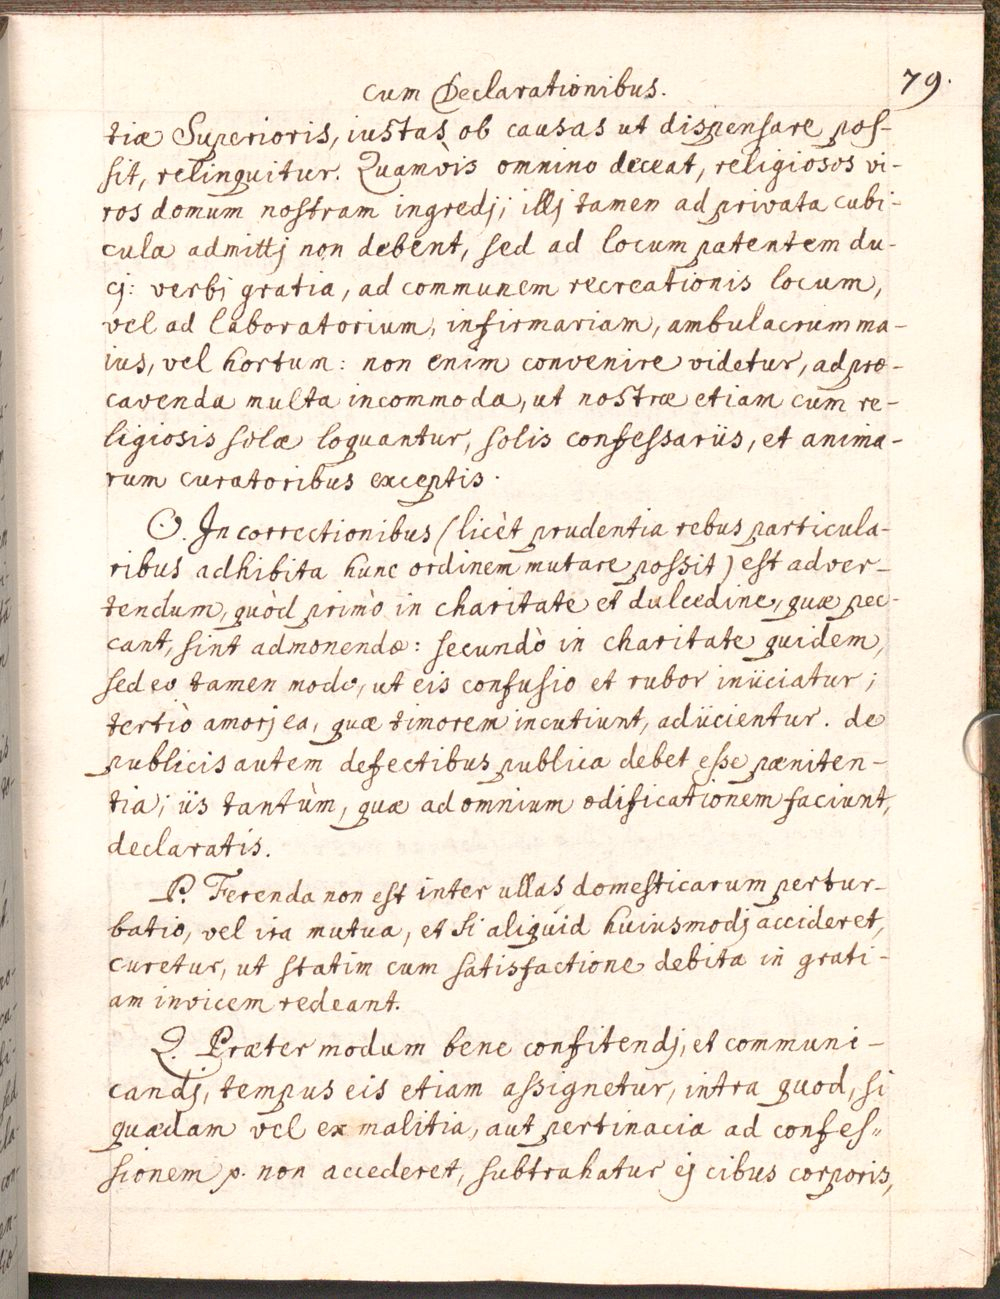 cum Declarationibus.
79.
tiæ Superioris, iustas ob causas ut dispensare pos-
sit, relinquitur. Quamvis omnino deceat, religiosos vi-
ros domum nostram ingredj; illj tamen ad privata cubi-
cula admittj non debent, sed ad locum patentem du-
cj: verbj gratia, ad communem recreationis locum,
vel ad laboratorium, infirmariam, ambulacrum ma-
ius, vel hortum: non enim convenire videtur, ad præ-
cavenda multa incommoda, ut nostræ etiam cum re-
ligiosis solæ loquantur, solis confessariis, et anima-
rum curatoribus exceptis.
O. In correctionibus (licèt prudentia rebus particula-
ribus adhibita hunc ordinem mutare possit) est adver-
tendum, quòd primò in charitate et dulcedine, quæ pec-
cant, sint admonendæ: secundò in charitate quidem,
sed eo tamen modo, ut eis confusio et rubor iniiciatur;
tertiò amorj ea, quæ timorem incutiunt, adiicientur. de
publicis autem defectibus publica debet esse pæniten-
tia; iis tantùm, quæ ad omnium ædificationem faciunt,
declaratis.
P. Ferenda non est inter ullas domesticarum pertur-
batio, vel ira mutua, et si aliquid huiusmodj accideret,
curetur, ut statim cum satisfactione debita in grati-
am invicem redeant.
Q. Præter modum bene confitendj, et communi-
candj, tempus eis etiam assignetur, intra quod, si
quædam vel ex malitia, aut pertinacia ad confes-
sionem p. non accederet, subtrahatur ej cibus corporis,